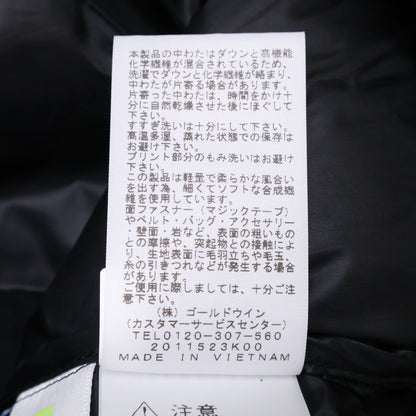 本製品の中わたはダウンと高機能
化学繊維が混合されているため、
洗濯でダウンと化学繊維が絡まり、
中わたが片寄る場合があります。
片寄った中わたは、時間をかけ十
分に自然乾燥させた後にほぐして
下さい。
すすぎ洗いは十分にして下さい。
高温多湿、蒸れた状態での保存は
お避け下さい。
プリント部分のもみ洗いはお避け
下さい。
この製品は軽量で柔らかな風合い
を出す為、細くてソフトな合成繊
維を使用しています。
面ファスナー（マジックテープ）
やベルト・バッグ・アクセサリー
・壁面・岩など、表面の粗いもの
との摩擦や、突起物との接触によ
り、生地表面に毛羽立ちや毛玉、
糸の引きつれなどが発生する場合
があります。
ご使用に際しましては、十分ご注
意下さい。
（株）ゴールドウイン
（カスタマーサービスセンター）
TEL0120-307-560
2011523K00
MADE IN VIETNAM
注意